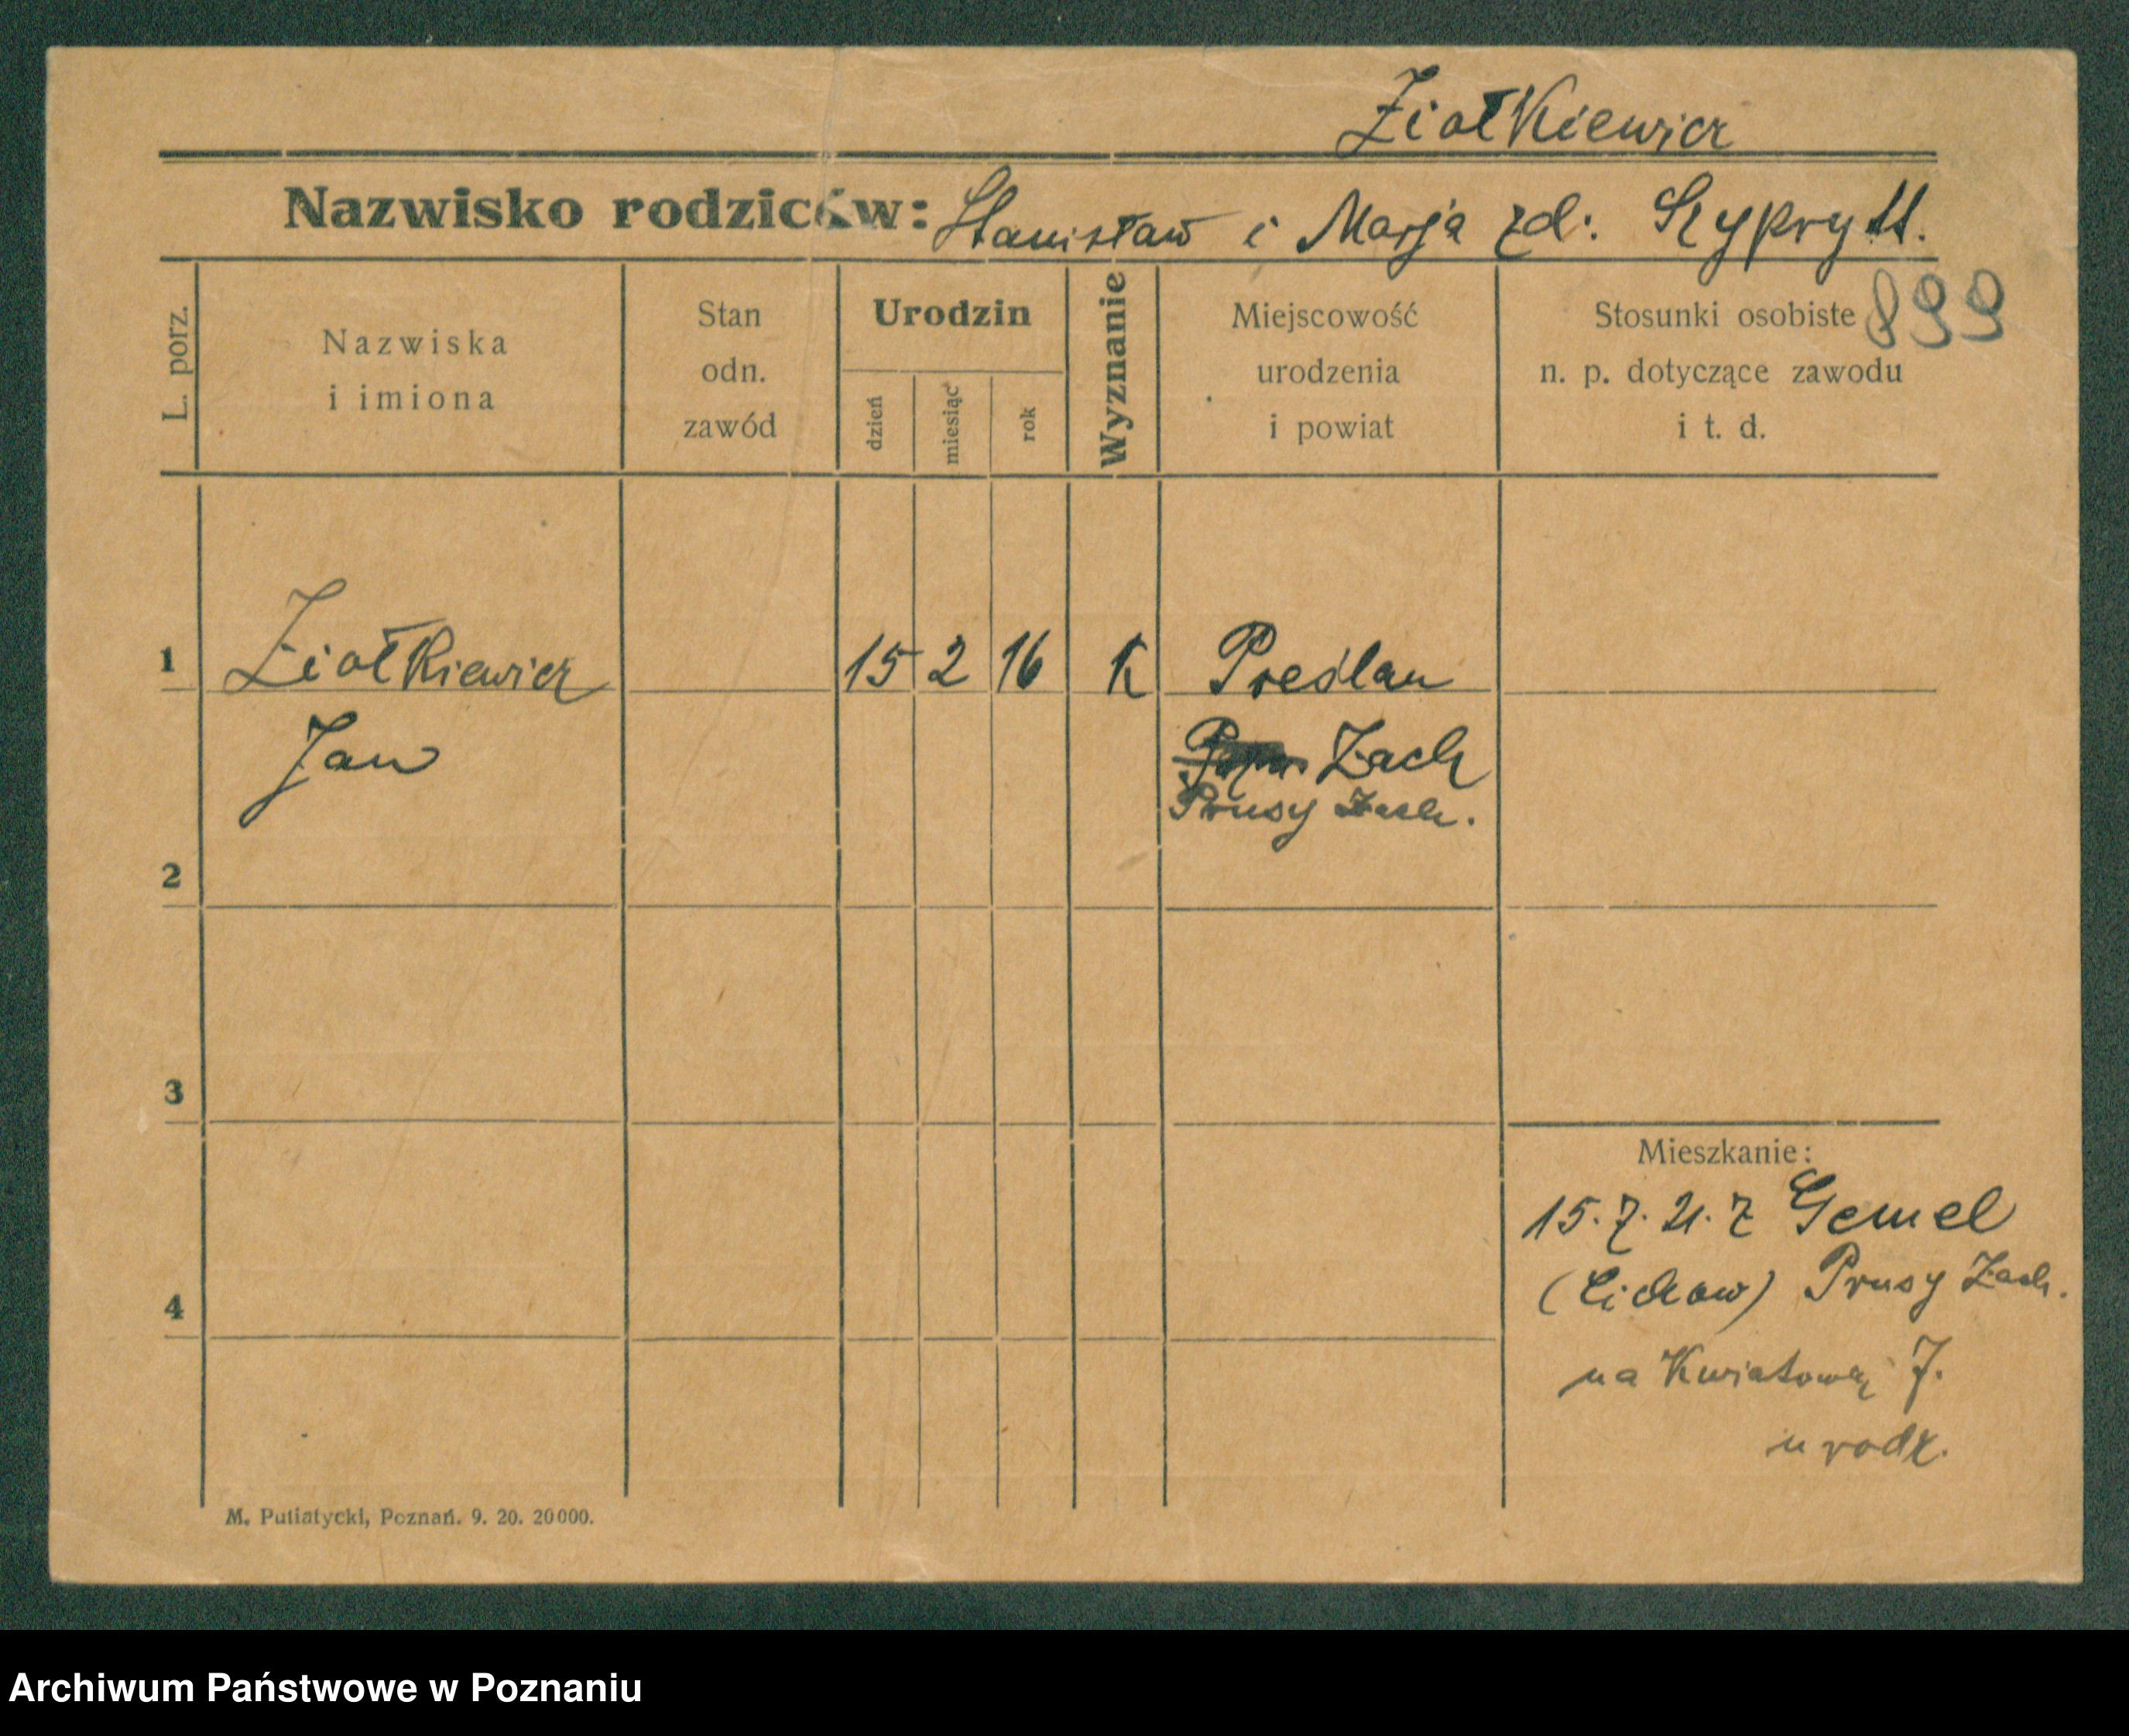 Ziołkiewicz
Nazwisko rodziców: Stanisław i Marja zd: Szyprytt.
899
L. porz.
Nazwiska
i imiona
Stan
odn.
zawód
Urodzin
dzień
miesiąc
rok
Wyznanie
Miejscowość
urodzenia
i powiat
Stosunki osobiste
n. p. dotyczące zawodu
i t. d.
1 Ziołkiewicz 15 2 16 K Preślau
Jan Zach
Prusy Zach.
2
3
Mieszkanie:
15. 7. 21. z Gemel
(Cichow) Prusy Zach.
4
na Kwiatową 7.
u rodz.
M. Putiatycki, Poznań. 9. 20. 20000.
Archiwum Państwowe w Poznaniu